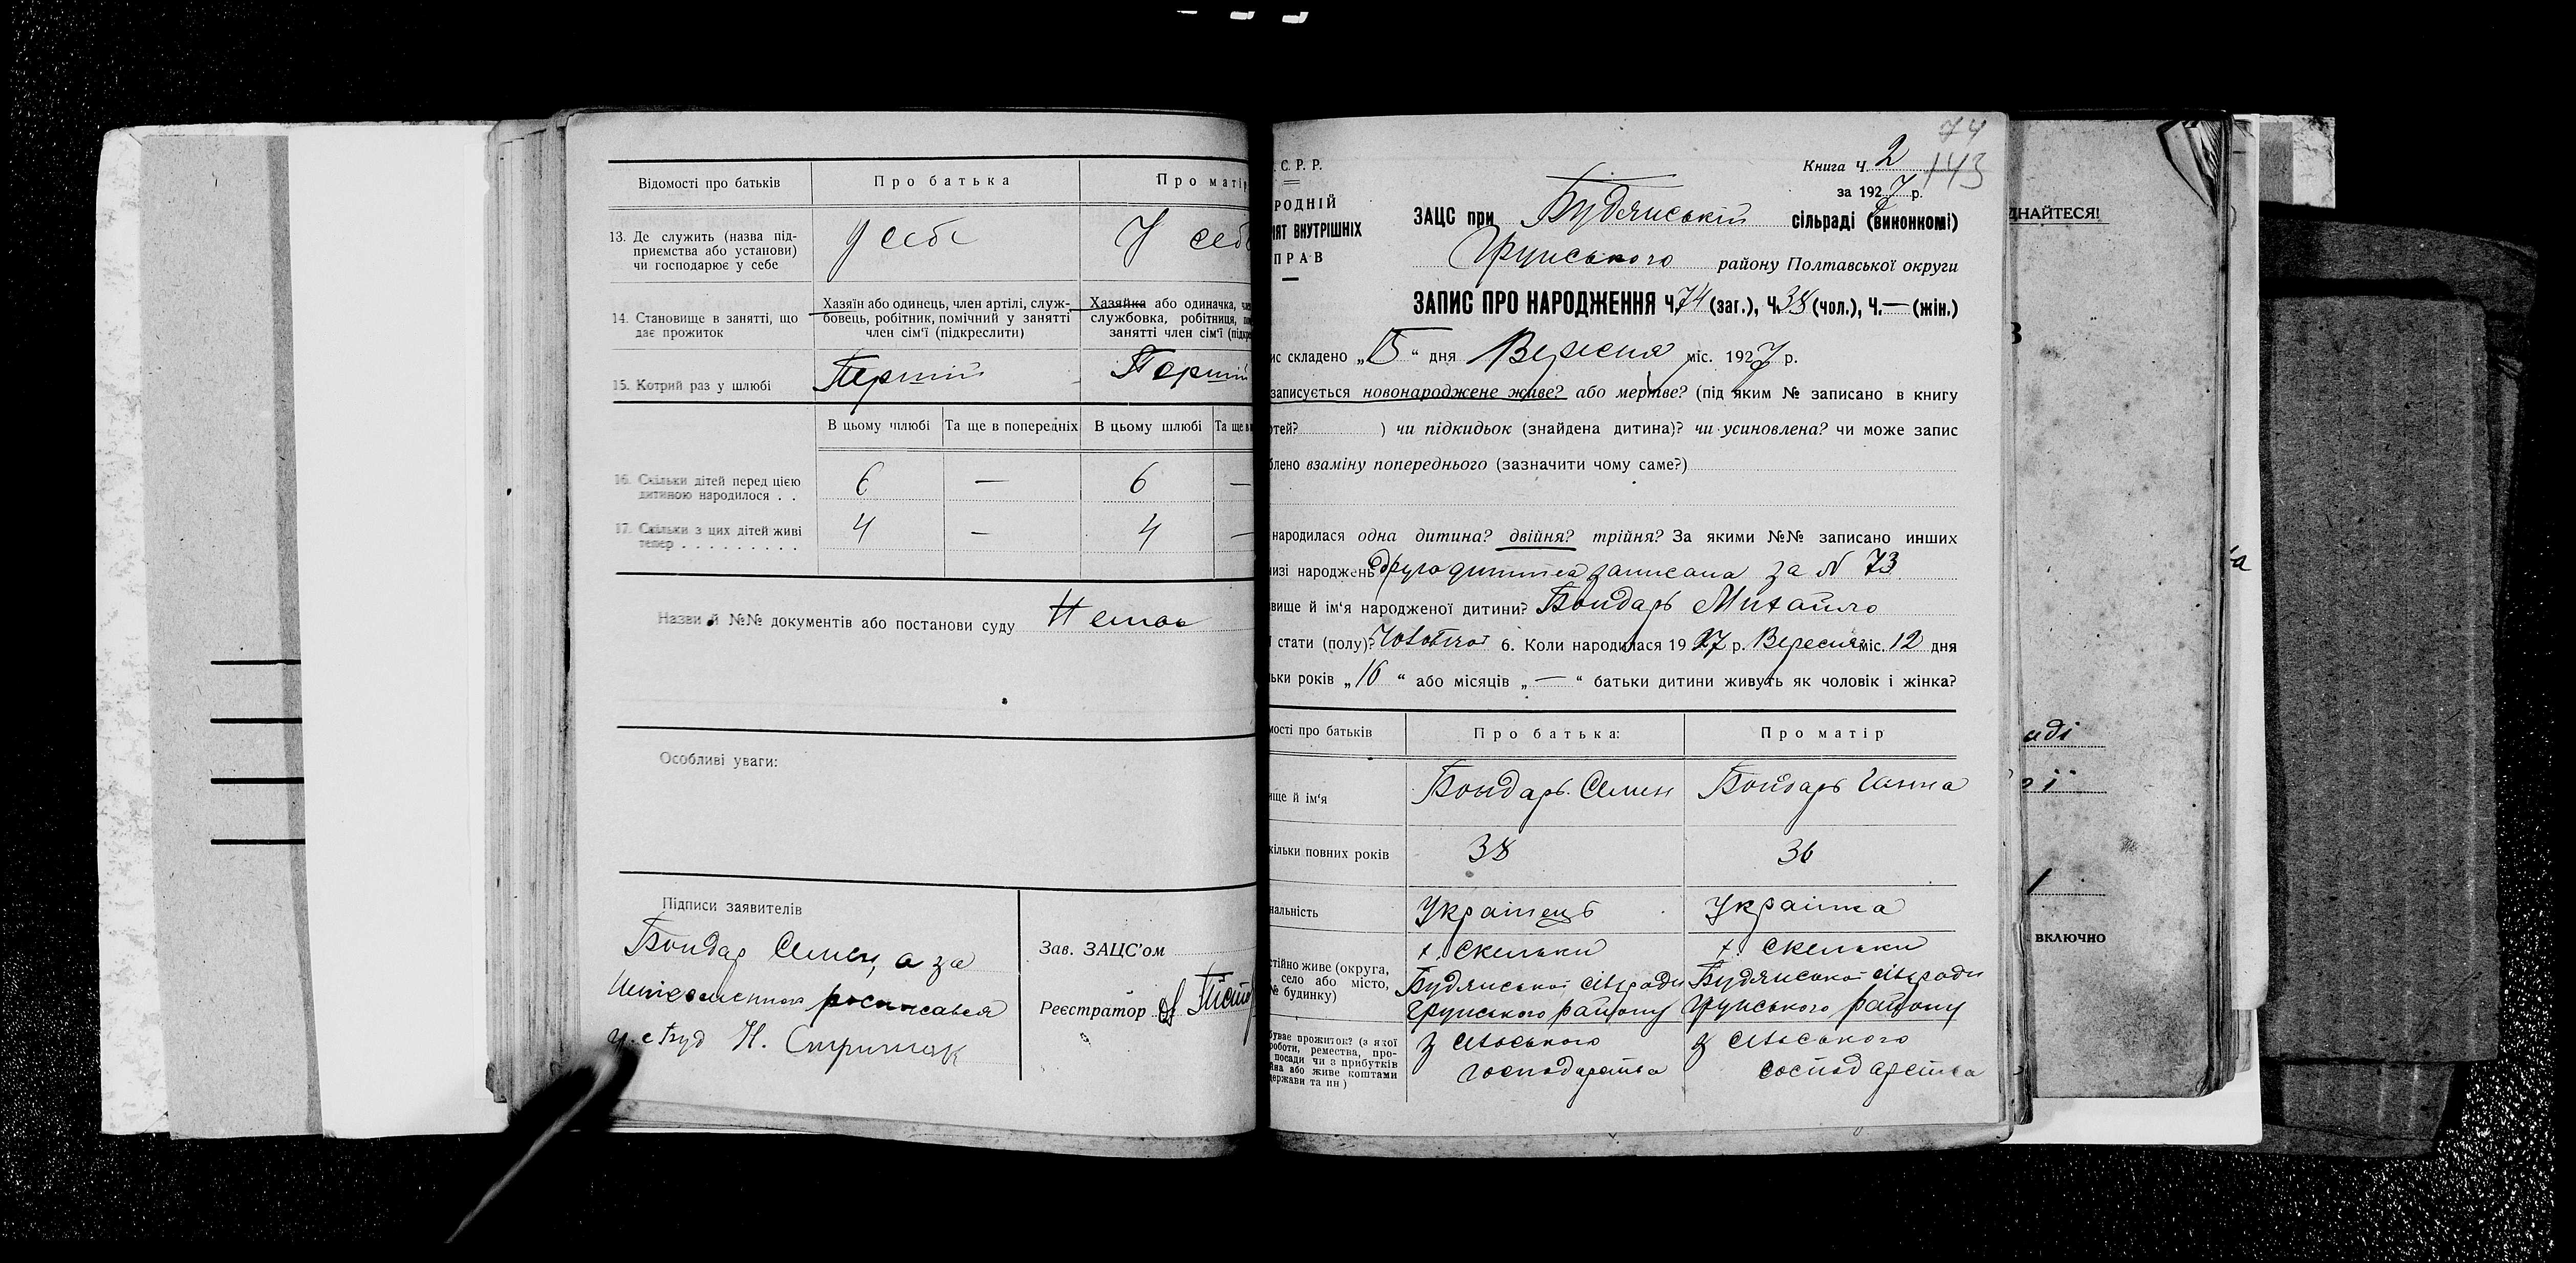 Відомості про батьків
Про батька
Про матір
13. Де служить (назва під-
приємства або установи)
чи господарює у себе
У себе
У себе
14. Становище в занятті, що
дає прожиток
Хазяїн або одинець, член артілі, служ-
бовець, робітник, помічний у занятті
член сім'ї (підкреслити)
Хазяйка або одиначка,
службовка, робітниця,
занятті член сім'ї
15. Котрий раз у шлюбі
Перший
Перший
В цьому шлюбі
Та ще в попередніх
В цьому шлюбі
Та ще в
16. Скільки дітей перед цією
дитиною народилося . .
6 — 6 —
17. Скільки з цих дітей живі
тепер . . . . . . . . .
4 — 4 —
Назви й №№ документів або постанови суду Немає
Особливі уваги:
Підписи заявителів
Бондар Семен, а за
росписався
Н.
Зав. ЗАЦС'ом
Реєстратор
74
143
С. Р. Р.
РОДНІЙ
ІЯТ ВНУТРІШНІХ
ПРАВ
Книга Ч. 2
за 1927 р.
ЗАЦС при Будянській сільраді (виконкомі)
Грунського району Полтавської округи
ЗАПИС ПРО НАРОДЖЕННЯ Ч. 74 (заг.), Ч. 38 (чол.), Ч. — (жін.)
ис складено „15“ дня Вересня міс. 1927 р.
записується новонароджене живе? або мертве? (під яким № записано в книгу
ртей? ) чи підкидьок (знайдена дитина)? чи усиновлена? чи може запис
блено взаміну попереднього (зазначити чому саме?)
народилася одна дитина? двійня? трійня? За якими №№ записано инших
низі народжень друга дитина записана за № 73
вище й ім'я народженої дитини? Бондарь Михайло
ї стати (полу)? 6. Коли народилася 1927 р. Вересня міс. 12 дня
льки років „16“ або місяців „—“ батьки дитини живуть як чоловік і жінка?
мості про батьків
Про батька:
Про матір
ище й ім'я
Бондарь Семен
Бондарь Ганна
кільки повних років
38
36
нальність
Українець
Українка
стійно живе (округа,
село або місто,
№ будинку)
х. Скельки
Будянської сільради
Грунського району
х. Скельки
Будянської сільради
Грунського району
буває прожиток? (з якої
роботи, ремества, про-
посади чи з прибутків
йна або живе коштами
держави та ин)
з сільського
господарства
з сільського
господарства
ДНАЙТЕСЯ!
аді
ої
ВКЛЮЧНО